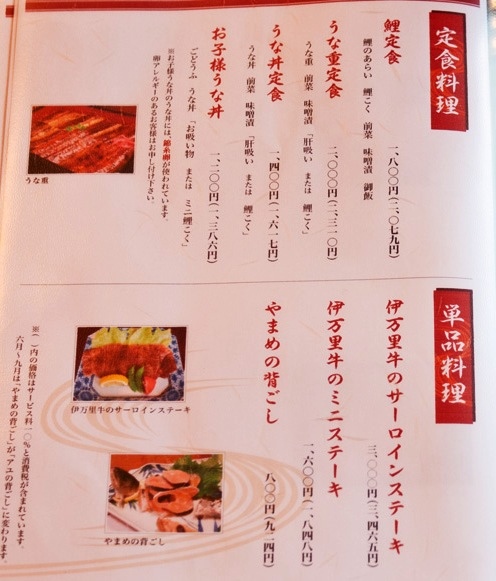 定食料理
鯉定食
鯉のあらい 鯉こく 前菜 味噌漬 御飯
一、八〇〇円(二、〇七九円)
うな重定食
うな重 前菜 味噌漬 「肝吸い または 鯉こく」
二、〇〇〇円(二、三一〇円)
うな丼定食
うな丼 前菜 味噌漬 「肝吸い または 鯉こく」
一、四〇〇円(一、六一七円)
お子様うな丼
ごどうふ うな丼 「お吸い物 または ミニ鯉こく」
一、二〇〇円(一、三八六円)
※お子様うな丼のうな丼には、錦糸卵が使われています。
卵アレルギーのあるお客様はお申し付け下さい。
うな重
単品料理
伊万里牛のサーロインステーキ
三、〇〇〇円(三、四六五円)
伊万里牛のミニステーキ
一、六〇〇円(一、八四八円)
やまめの背ごし
八〇〇円(九二四円)
伊万里牛のサーロインステーキ
やまめの背ごし
※( )内の価格はサービス料一〇%と消費税が含まれています。
六月〜九月は「やまめの背ごし」が「アユの背ごし」に変わります。